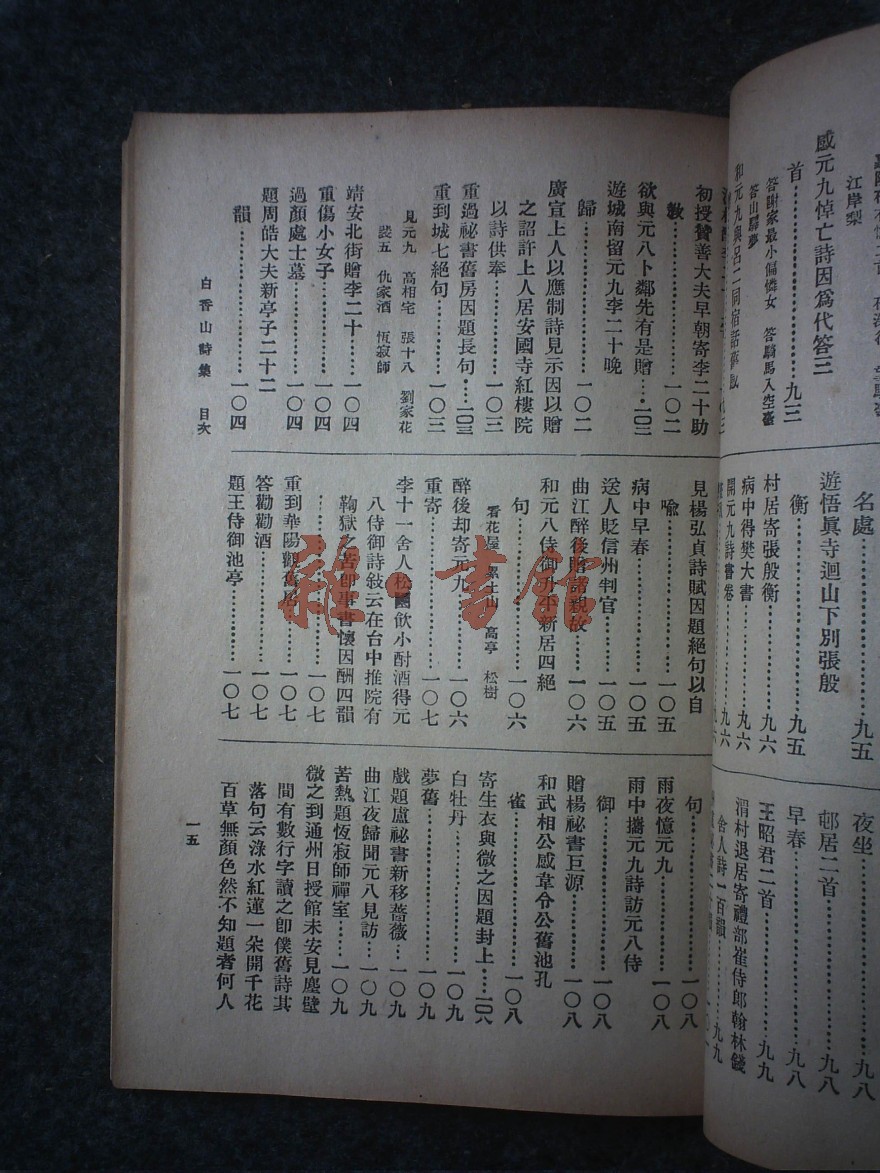 感元九悼亡詩因爲代答三
首…………九三
答謝家最小偏憐女 答騎馬入空臺
答山驛夢
和元九與呂二同宿話舊感
江岸梨
名處…………九五
遊悟眞寺迴山下別張殷
衡…………九五
村居寄張殷衡…………九六
病中得樊大書…………九六
開元九詩書卷…………九六
夜坐…………九八
邨居二首…………九八
早春…………九八
王昭君二首…………九九
渭村退居寄禮部崔侍郎翰林錢
舍人詩一百韻…………九九
初授贊善大夫早朝寄李二十助
敎…………一〇二
欲與元八卜鄰先有是贈…一〇二
遊城南留元九李二十晚
歸…………一〇二
廣宣上人以應制詩見示因以贈
之詔許上人居安國寺紅樓院
以詩供奉…………一〇三
重過祕書舊房因題長句…一〇三
重到城七絕句…………一〇三
見元九 高相宅 張十八 劉家花
裴五 仇家酒 恆寂師
靖安北街贈李二十…………一〇四
重傷小女子…………一〇四
過顏處士墓…………一〇四
題周皓大夫新亭子二十二
韻…………一〇四
見楊弘貞詩賦因題絕句以自
喩…………一〇五
病中早春…………一〇五
送人貶信州判官…………一〇五
曲江醉後贈諸親故…………一〇六
和元八侍御升平新居四絕
句…………一〇六
看花屋 累土山 高亭 松樹
醉後却寄元九…………一〇六
重寄…………一〇七
李十一舍人松園飲小酎酒得元
八侍御詩敍云在台中推院有
鞠獄之苦卽事書懷因酬四韻
…………一〇七
重到華陽觀舊居…………一〇七
答勸酒…………一〇七
題王侍御池亭…………一〇七
句…………一〇八
雨夜憶元九…………一〇八
雨中攜元九詩訪元八侍
御…………一〇八
贈楊祕書巨源…………一〇八
和武相公感韋令公舊池孔
雀…………一〇八
寄生衣與微之因題封上…一〇八
白牡丹…………一〇九
夢舊…………一〇九
戲題盧祕書新移薔薇…一〇九
曲江夜歸聞元八見訪…一〇九
苦熱題恆寂師禪室……一〇九
微之到通州日授館未安見塵壁
間有數行字讀之卽僕舊詩其
落句云淥水紅蓮一朶開千花
百草無顏色然不知題者何人
白香山詩集 目次
一五